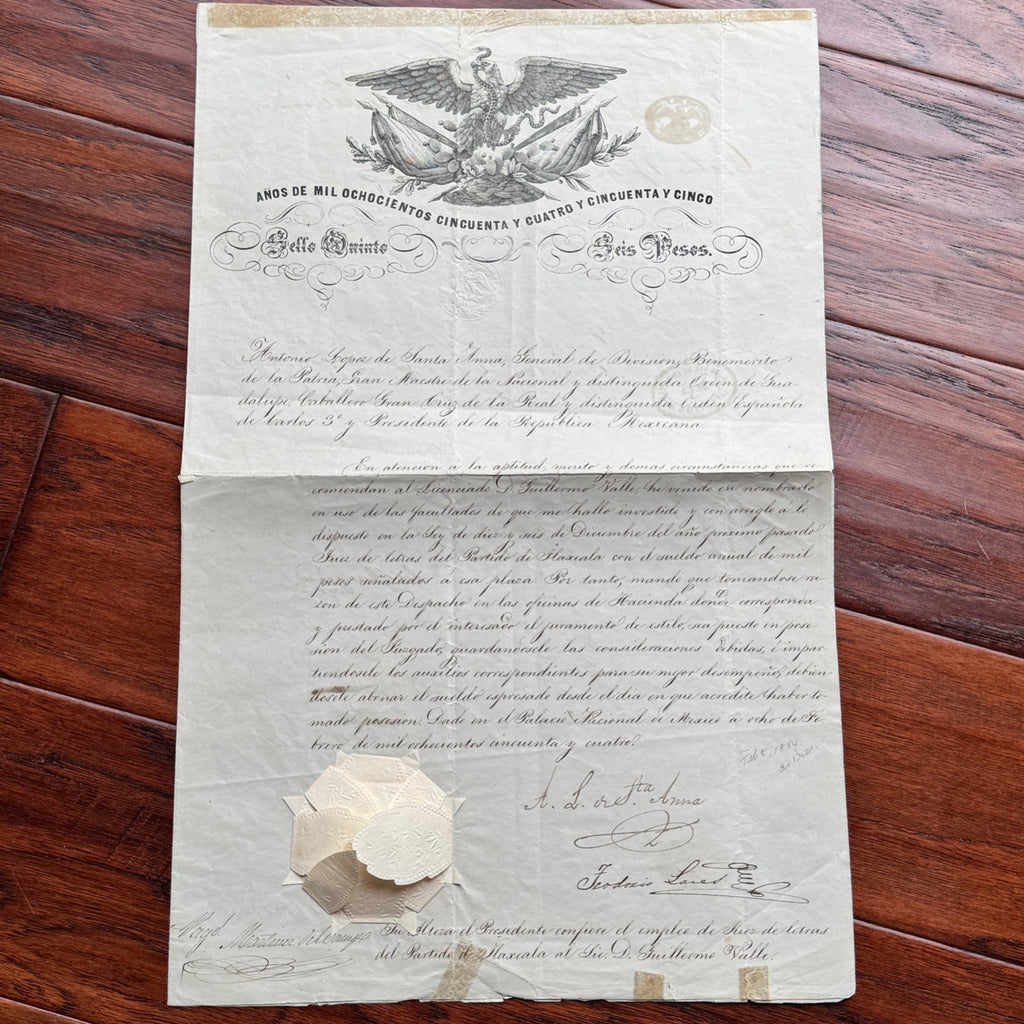 AÑOS DE MIL OCHOCIENTOS CINCUENTA Y CUATRO Y CINCUENTA Y CINCO
Sello Quinto
Seis Pesos.
Antonio Lopez de Santa Anna, General de Division, Benemerito
de la Patria, Gran Maestre de la Nacional y distinguida Orden de Gua
dalupe, Caballero Gran Cruz de la Real y distinguida Orden Española
de Carlos 3º y Presidente de la Republica Mexicana
En atencion á la aptitud, merito y demas circunstancias que re
comiendan al Licenciado D. Guillermo Valle, he venido en nombrarlo
en uso de las facultades de que me hallo investido y con arreglo á lo
dispuesto en la Ley de diez y seis de Diciembre del año proximo pasado
Juez de letras del Partido de Tlaxcala con el sueldo anual de mil
pesos señalados á esa plaza. Por tanto, mando que tomandose ra
zon de este Despacho en las oficinas de Hacienda donde corresponda
y prestado por el interesado el juramento de estilo, sea puesto en pose-
sion del Juzgado, guardandosele las consideraciones debidas, é impar
tiendosele los auxilios correspondientes para su mejor desempeño, debien
dosele abonar el sueldo espresado desde el dia en que acredite haber to-
mado posesion. Dado en el Palacio Nacional de Mexico á ocho de Fe-
brero de mil ochocientos cincuenta y cuatro.
Feb 8, 1854
A. L. de Sta Anna
Teodosio Lares
Martinez del
Su Alteza el Presidente confiere el empleo de Juez de letras
del Partido de Tlaxcala al Lic. D. Guillermo Valle.